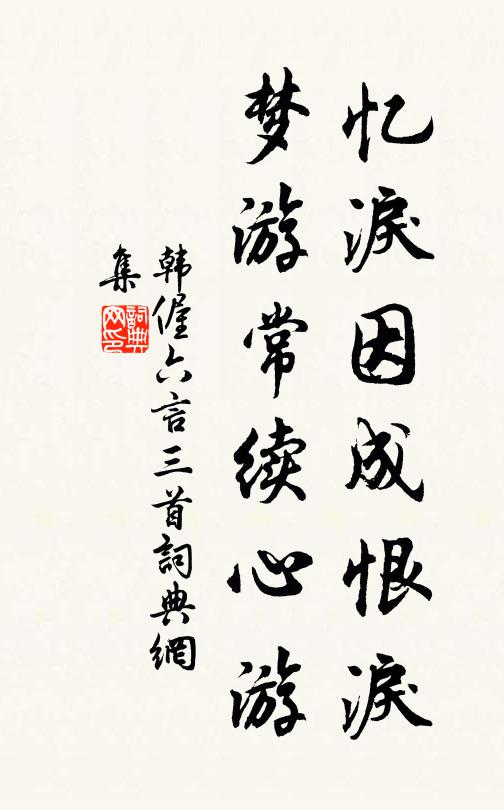 忆淚因成恨淚
梦游常续心游
韩偓六言三首詞典網
集
詞典
网印